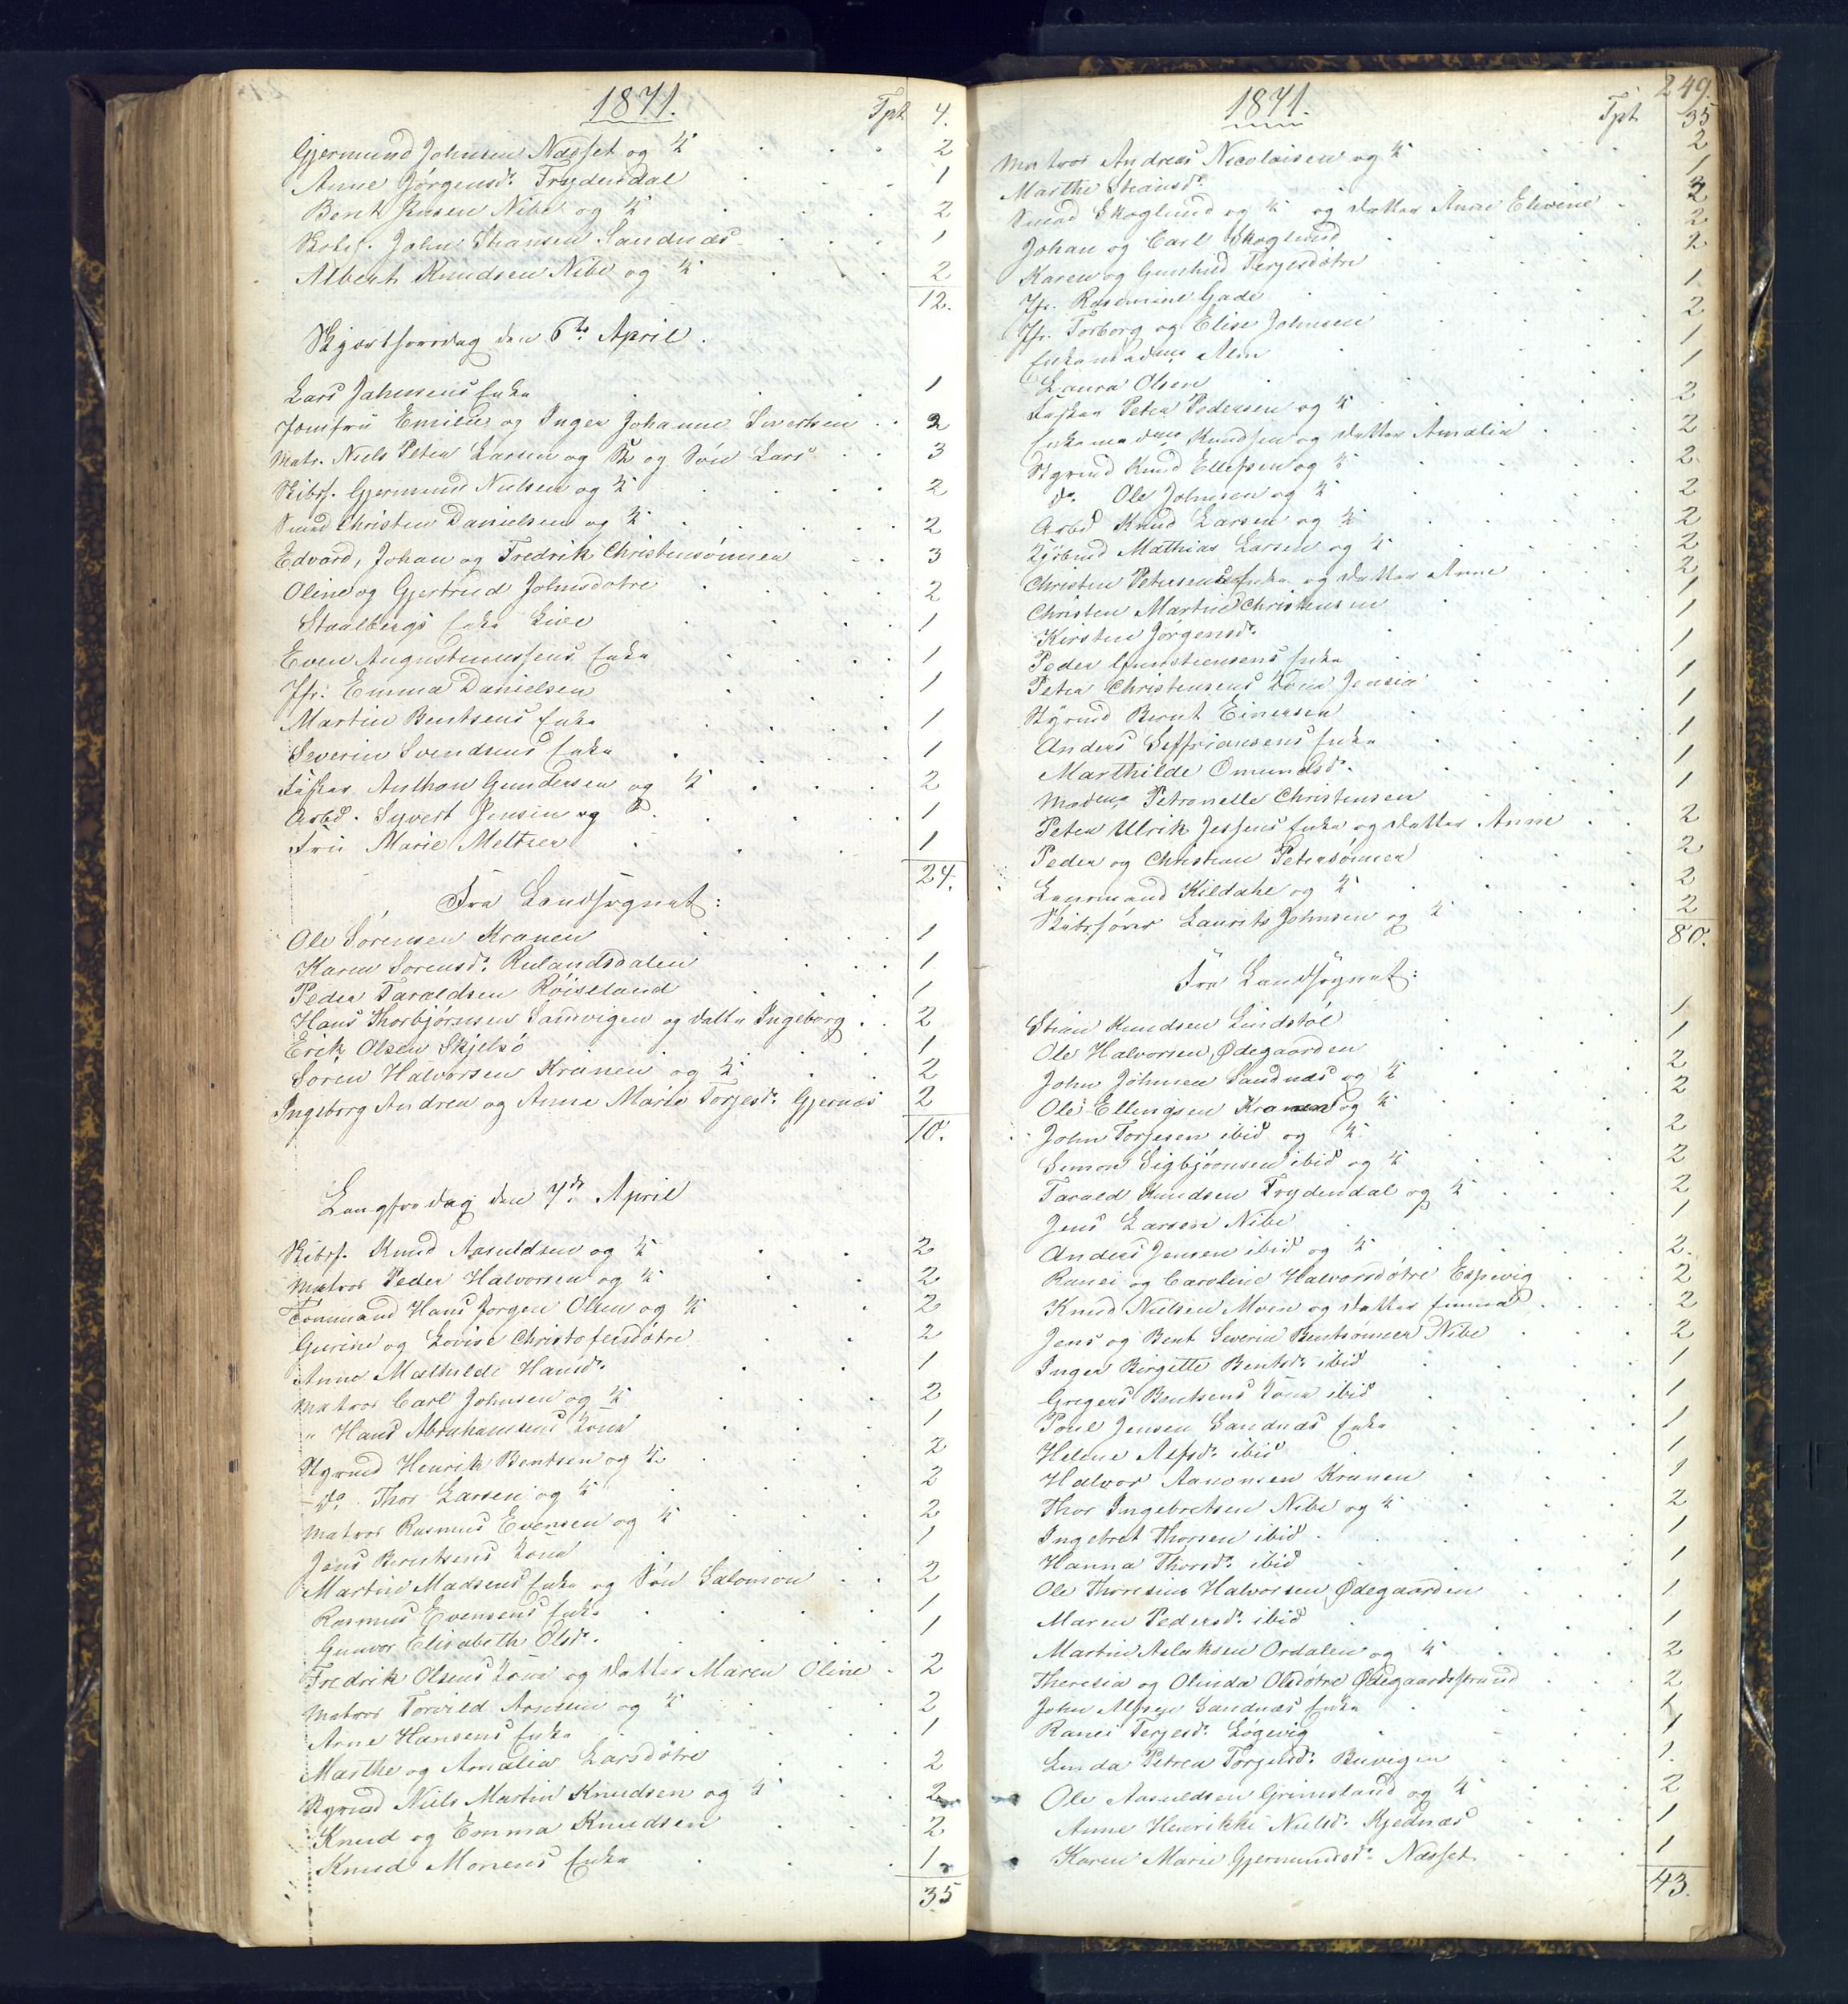 1871.
Tpt. 4.
Gjermund Johnsen Næsset og K. 2
Anne Jørgensdr. Trydersdal 1
Bent Jensen Nibe og K. 2
John Stiansen Sandnæs 1
Albert Knudsen Nibe og K. 2
12.
Skjærthorsdag den 6te April.
Lars Jahnsens Enke 1
Jomfru Emilie og Inger Johanne Sivertsen 2
Matr. Niels Peter Larsen og K. og Søn Lars 3
Skibsf. Gjermund Nielsen og K. 2
Smed Christen Danielsen og K. 2
Edvard, Johan og Fredrik Christensønner 3
Oline og Gjertrud Johnsdøtre 2
Staalbergs Enke Live 1
Even Augustinussens Enke 1
Jfr. Emma Danielsen 1
Martin Bentsens Enke 1
Severin Svendsens Enke 1
Fisker Anthon Gundersen og K. 2
Arbd. Syvert Jensen og K. 1
Fru Marie Meltzer 1
24.
Fra Landsognet:
Ole Sørensen Kranen 1
Karen Sorensdr. Rulandsdalen 1
Peder Taraldsen Röiseland 1
Hans Thorbjørnsen Sandvigen og datter Ingeborg 2
Erik Olsen Skjelsö 1
Soren Halvorsen Kranen og K. 2
Ingeborg Andrea og Anne Marie Torjesdr. Gjernæs 2
10.
Langfredag den 7de April
Skibsf. Knud Asuldsen og K. 2
Matros Peder Halvorsen og K. 2
Tømmand Hans Jørgen Olsen og K. 2
Gurine og Lovise Christofersdøtre 2
Anne Mathilde Hansdr. 1
Matros Carl Johnsen og K. 2
" Hans Abrahamsens Kone 1
Styrmd Henrik Bentsen og K. 2
do. Thor Larsen og K. 2
Matros Rasmus Evensen og K. 2
Jens Berntsens Kone 1
Martin Madsens Enke og Søn Salomon 2
Rasmus Evensens Enke 1
Gunvor Elisabeth Olsdr. 1
Fredrik Olsens Kone og datter Maren Oline 2
Matros Torvild Arnesen og K. 2
Arne Hansens Enke 1
Marthe og Amalia Larsdøtre 2
Styrmd Niels Martin Knudsen og K. 2
Knud og Emma Knudsen 2
Knud Monsens Enke 1
35
1871.
249.
Tpt. 35
Matros Andreas Nicolaisen og K. 2
Marthe Stiansdr. 1
Smed Skoglund og K. og datter Anne Elevine 3
Johan og Carl Skoglund 2
Karen og Gunhild Terjesdøtre 2
Jfr. Rasmine Gade 1
Jfr. Torborg og Elise Johnsen 2
Enkemadme Alm 1
Laura Olsen 1
Fisker Peter Pedersen og K. 2
Enkemadme Knudsen og datter Amalia 2
Styrmd Knud Ellefsen og K. 2
do. Ole Johnsen og K. 2
Arbd Knud Larsen og K. 2
Mathias Larsen og K. 2
Christen Petersens Enke og datter Anne 2
Christen Martin Christensen 1
Kirsten Jørgensdr. 1
Peder Gunstensens Enke 1
Peter Christensens Kone Jensia 1
Styrmd Bernt Einersen 1
Anders Seffriansens Enke 1
Marthilde Omundsdr. 1
Madme Petronelle Christensen 1
Peter Ulrik Jessens Enke og datter Anne 2
Peder og Christian Petersønner 2
Lensmand Kildahl og K. 2
Skibsfører Laurits Johnsen og K. 2
80.
Fra Landsognet:
Stian Knudsen Lindstøl 1
Ole Halvorsen, Ødegaarden 1
John Johnsen Sandnæs og K. 2
Ole Ellingsen Kranen og K. 2
John Torjesen ibid og K. 2
Simon Sigbjörnsen ibid og K. 2
Tarald Knudsen Trydendal og K. 2
Jens Larsen Nibe 1
Anders Jensen ibid og K. 2.
Ranei og Caroline Halvorsdøtre Espevig 2
Knud Nielsen Moen og datter Emma 2
Jens og Bent Severin Bentsønner Nibe 2
Inger Birgitte Bentsdr. ibid 1
Gregers Bentsens Kone ibid 1
Poul Jensen Sandnæs Enke 1
Helene Alfsdr. ibid 1
Halvor Aanonsen Kranen 1
Thor Ingebretsen Nibe og K. 2
Ingebret Thorsen ibid 1
Hanna Thorsdr. ibid 1
Ole Thoresius Halvorsen Ødegaarden 1
Maren Pedersdr. ibid 1
Martin Aslaksen Ordalen og K. 2
Theresia og Olinda Olsdøtre Ødegaardsstrand 2
John Alfsen Sandnæs Enke 1
Ranei Terjesdr. Løgevig 1
Linda Petrea Torjusdr. Buvigen 1.
Ole Asuldsen Grimsland og K. 2
Anne Henrikke Nielsdr. Kjednæs 1
Karen Marie Gjermundsdr. Næsset 1
43.